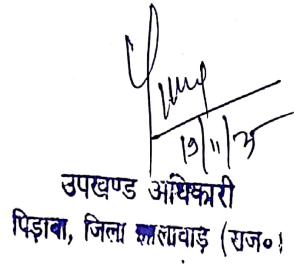 19/11/25
उपखण्ड अधिकारी
पिड़ावा, जिला झालावाड़ (राज०)